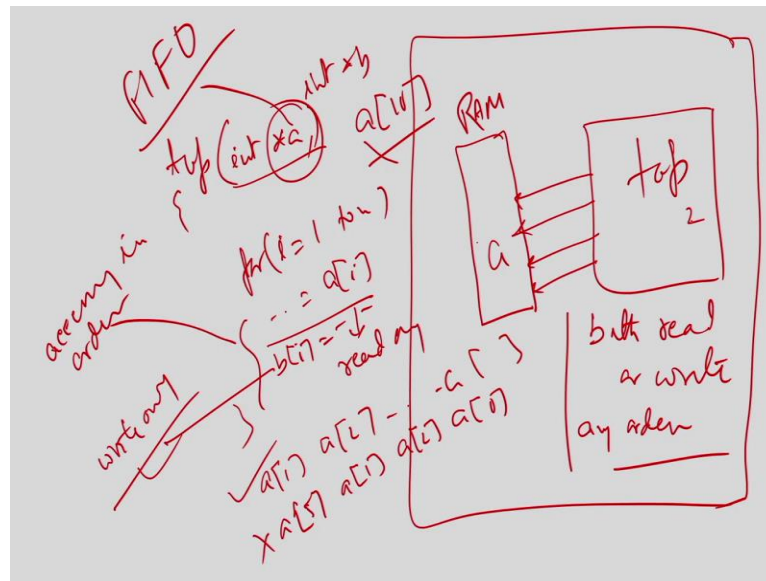 FIFO
int *b
top(int *a,
a[10]
{
for(i=1 to n)
... = a[i]
b[i]=
read only
accessing in
order
}
write only
a[1] a[2] - . - a[ ]
x a[5] a[1] a[2] a[0]
RAM
a
top
2
both read
or write
any order